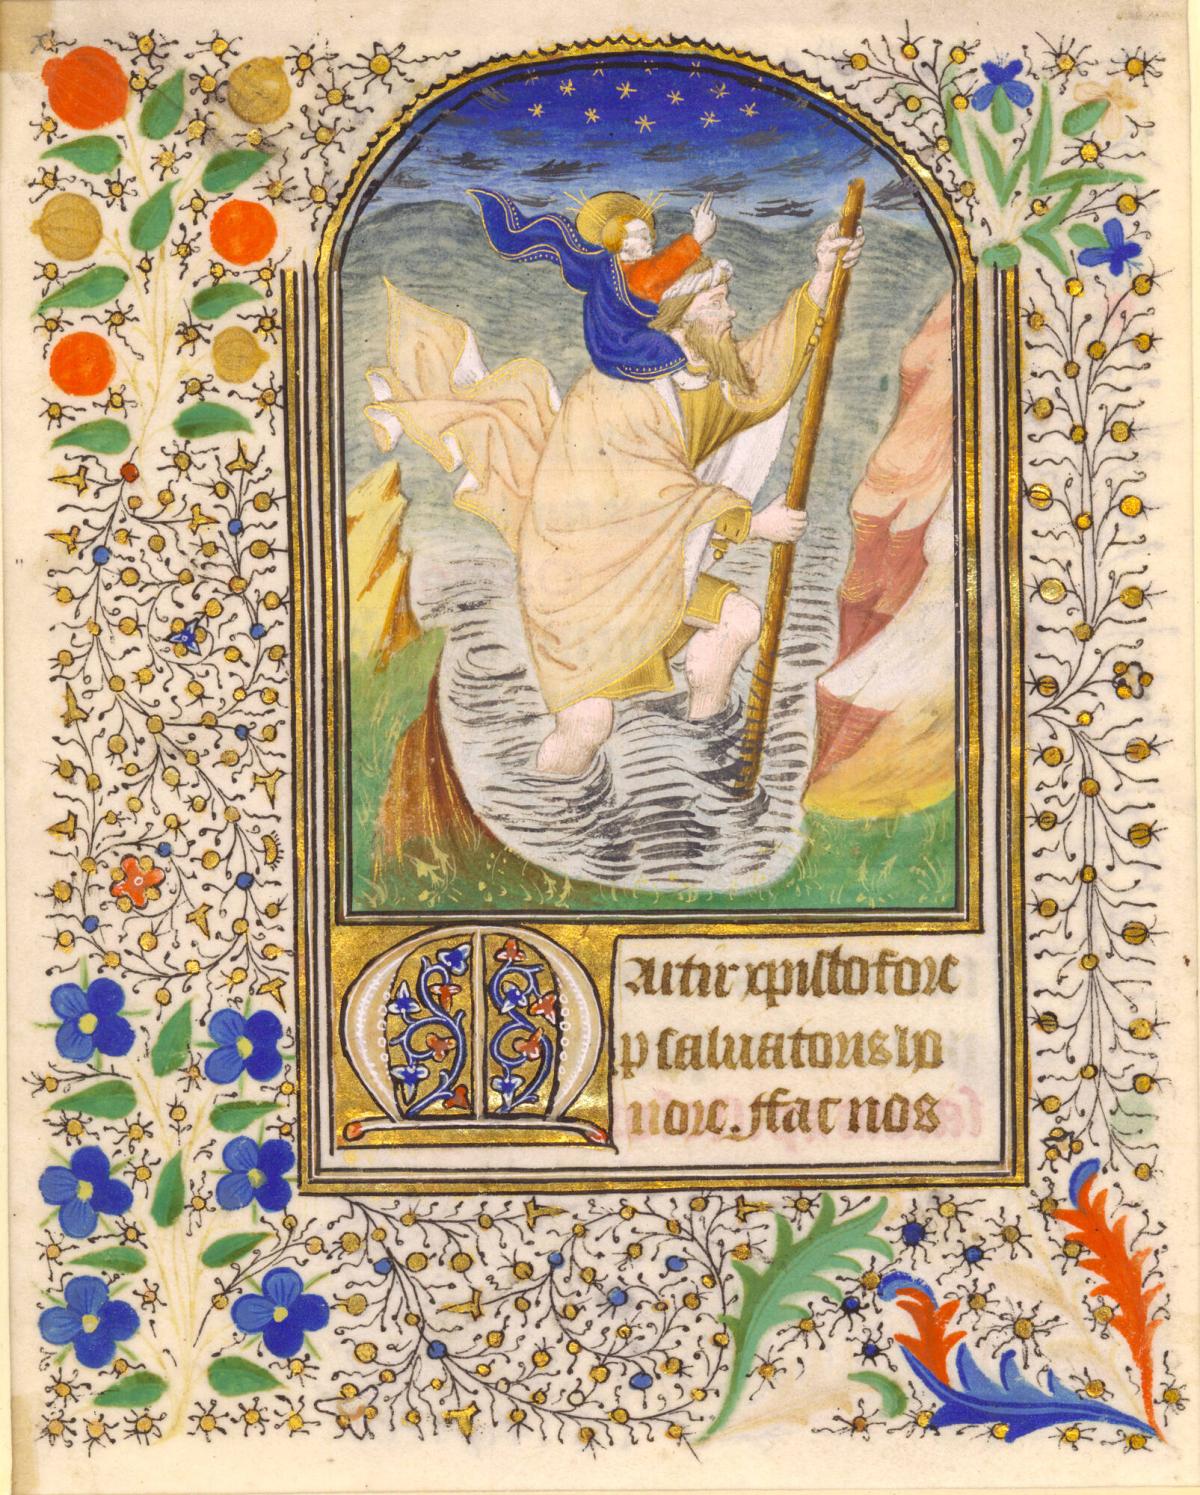 Martir xpistofore
p saluatoris ho
nore. ffac nos